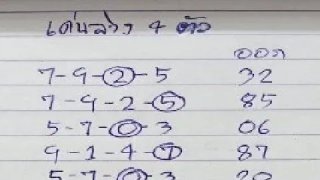 เด่นล่าง 4 ตัว
ออก
7-9-2-5 32
7-9-2-5 85
5-7-0-3 06
9-1-4-7 87
5-7-0-3 20